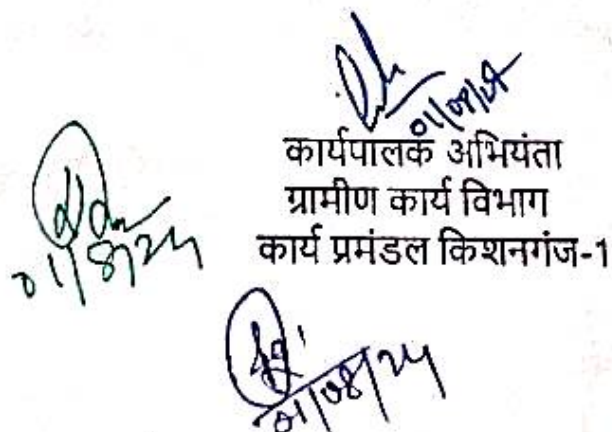 01/08/24
कार्यपालक अभियंता
ग्रामीण कार्य विभाग
कार्य प्रमंडल किशनगंज-1
01/8/24
01/08/24